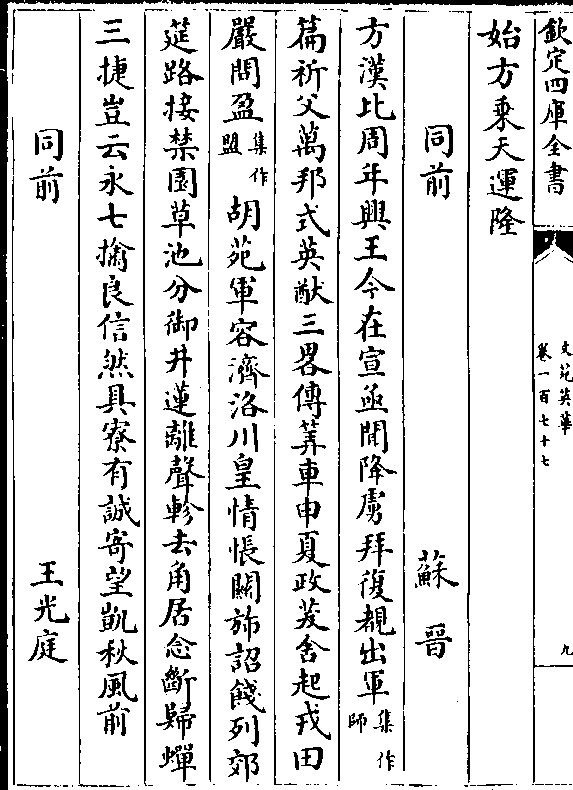 欽定四庫全書
文苑英華
卷一百七十七
九
始方乘天運隆
同前 蘇晉
方漢比周年興王今在宣亟聞降虜拜復覩出軍集作師
篇祈父萬邦式英猷三畧傳筭車申夏政茇舍起戎田
嚴問盈集作盟胡苑軍容濟洛川皇情悵關斾詔餞列郊
筵路接禁園草池分御井蓮離聲軫去角居念斷歸蟬
三捷豈云永七擒良信然具寮有誠寄望凱秋風前
同前 王光庭